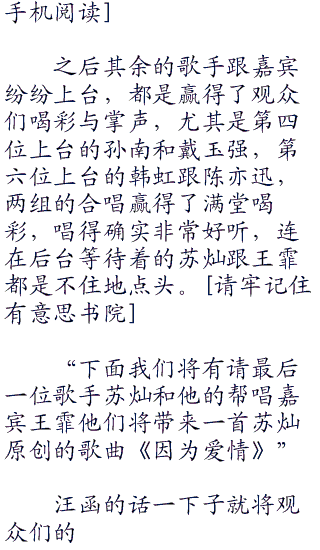 手机阅读]
之后其余的歌手跟嘉宾
纷纷上台，都是赢得了观众
们喝彩与掌声，尤其是第四
位上台的孙南和戴玉强，第
六位上台的韩虹跟陈亦迅，
两组的合唱赢得了满堂喝
彩，唱得确实非常好听，连
在后台等待着的苏灿跟王霏
都是不住地点头。[请牢记住
有意思书院]
“下面我们将有请最后
一位歌手苏灿和他的帮唱嘉
宾王霏他们将带来一首苏灿
原创的歌曲《因为爱情》”
汪函的话一下子就将观
众们的